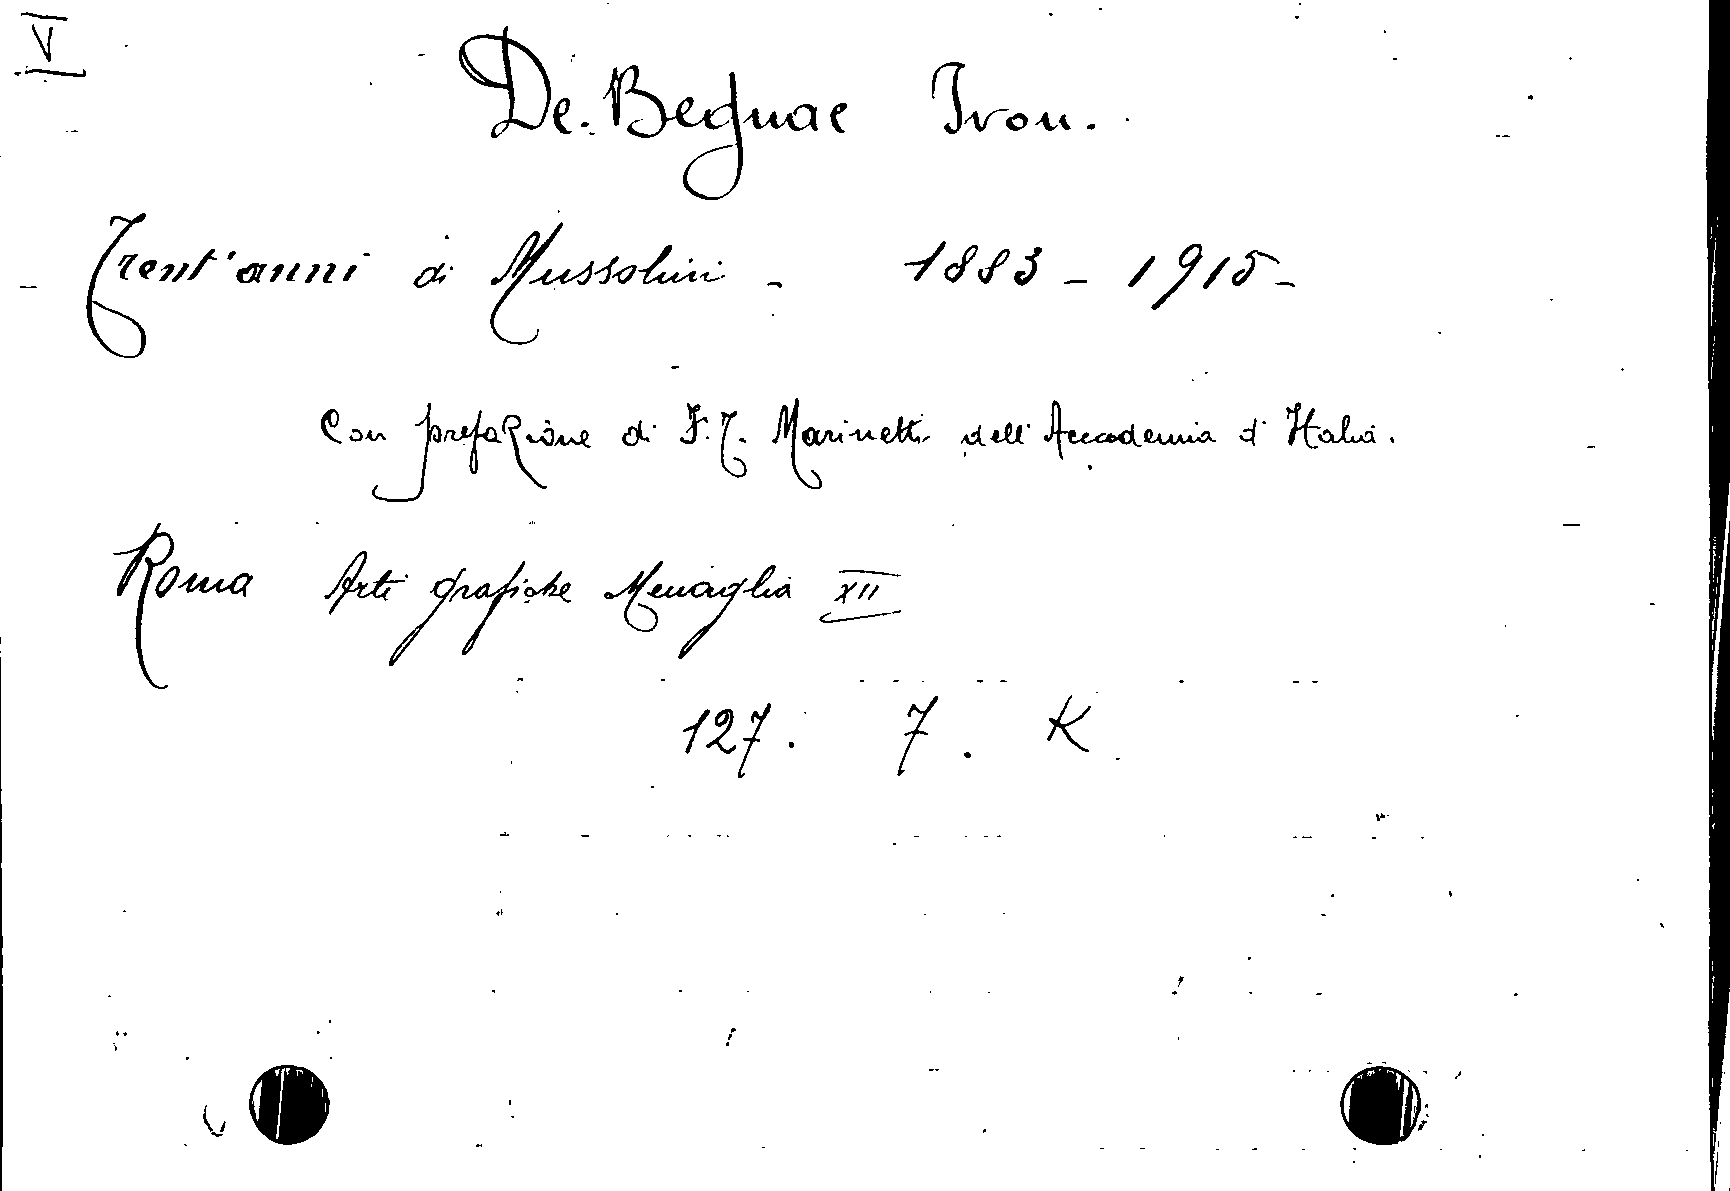 V
De. Begnac Ivon.
Trent'anni di Mussolini - 1883 - 1915 -
Con prefazione di F. T. Marinetti dell'Accademia d'Italia.
Roma Arti grafiche Menaglia XII
127. 7. K